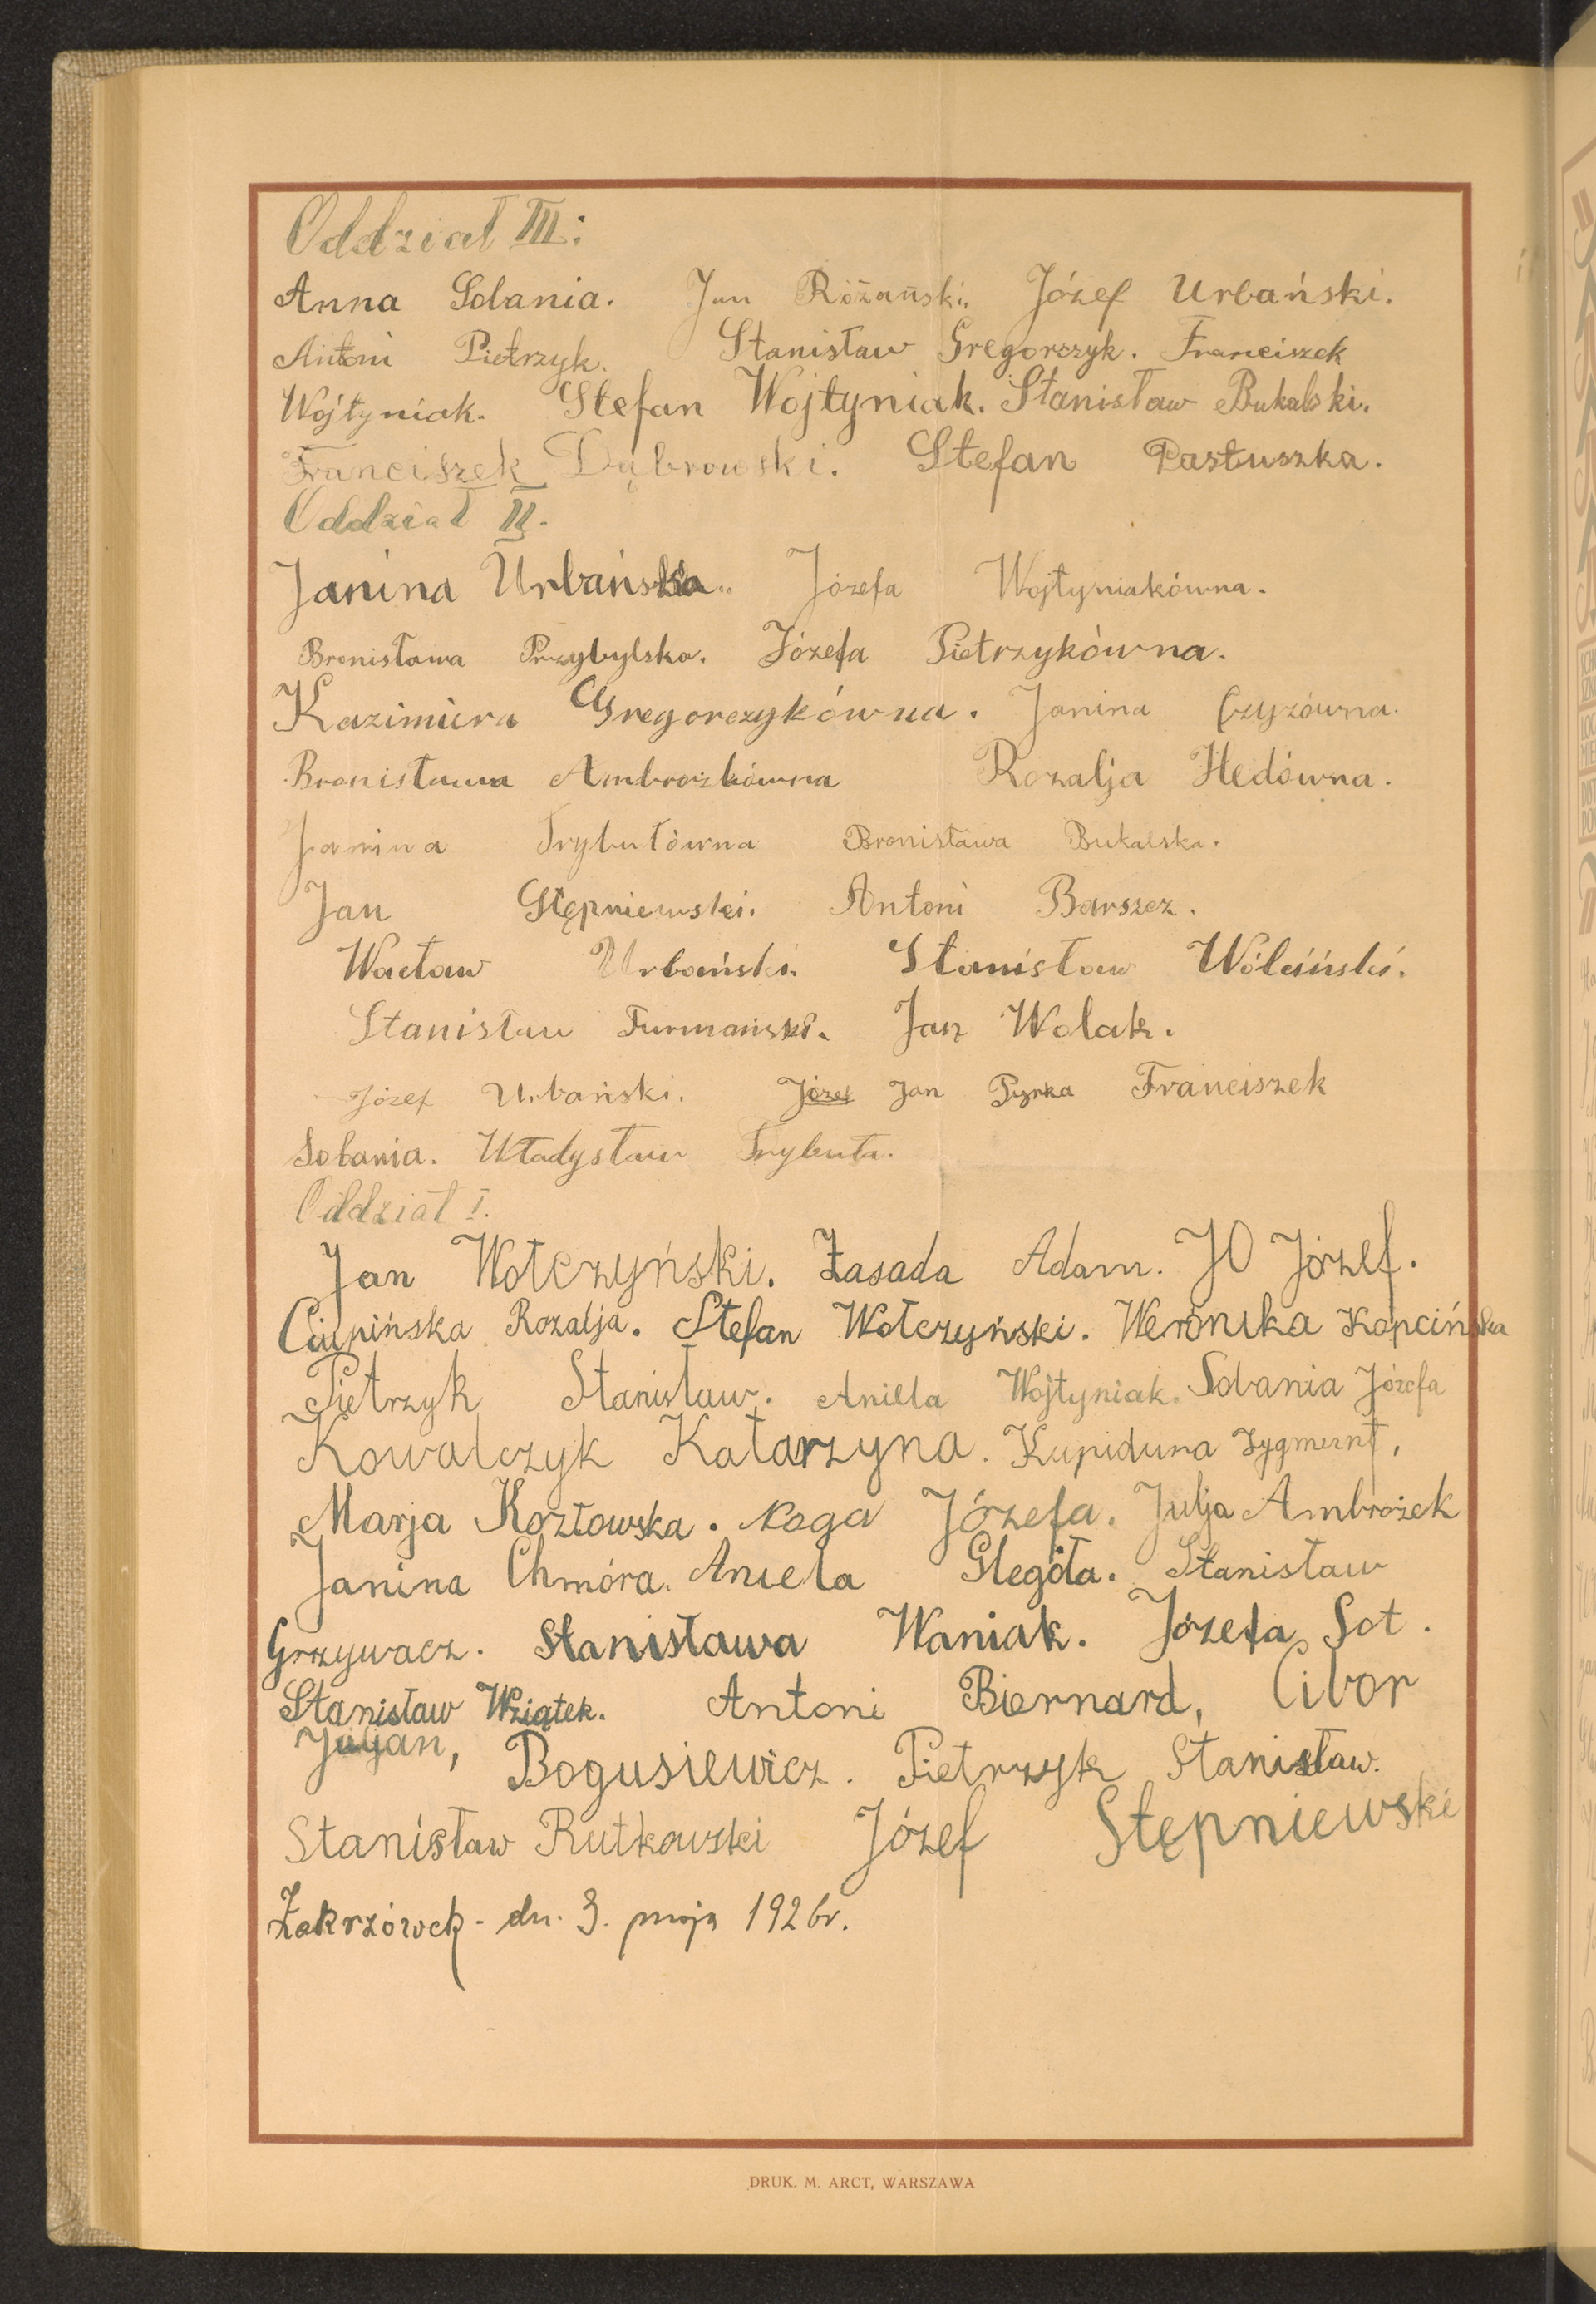 Oddział III:
Anna Sobania. Jan Różański. Józef Urbański.
Antoni Pietrzyk. Stanisław Gregorczyk. Franciszek
Wojtyniak. Stefan Wojtyniak. Stanisław Bukalski.
Franciszek Dąbrowski. Stefan Pastuszka.
Oddział II.
Janina Urbańska. Józefa Wojtyniakówna.
Bronisława Przybylska. Józefa Pietrzykówna.
Kazimiera Gregorczykówna. Janina Czyżówna.
Bronisława Ambrożkówna Rozalja Hedówna.
Janina Trybułówna Bronisława Bukalska.
Jan Stępniewski. Antoni Barszcz.
Wacław Urbański. Stanisław Wólciński.
Stanisław Furmański. Jan Wolak.
Józef Urbański. Józef Jan Pyrka Franciszek
Sobania. Władysław Trybuła.
Oddział I.
Jan Wołczyński. Zasada Adam. JO Józef.
Ciupińska Rozalja. Stefan Wołczyński. Weronika Kapcińska
Pietrzyk Stanisław. Aniela Wojtyniak. Sobania Józefa
Kowalczyk Katarzyna. Kupidura Zygmunt,
Marja Kozłowska. Koga Józefa. Julja Ambrożek
Janina Chmóra. Aniela Glegóła. Stanisław
Grzywacz. Stanisława Waniak. Józefa Sot.
Stanisław Wziątek. Antoni Biernard, Cibor
Juljan, Bogusiewicz. Pietrzyk Stanisław.
Stanisław Rutkowski Józef Stępniewski
Zakrzówek - dn. 3. maja 1926r.
DRUK. M. ARCT, WARSZAWA